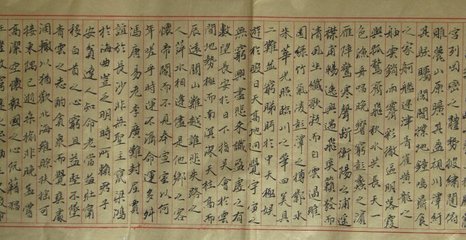 宮列岡巒之體勢披繡闥俯
雕甍山原曠其盈視川澤紆
其駭矚閭閻撲地鐘鳴鼎食
之家舸艦迷津青雀黃龍之
舳雲銷雨霽彩徹區明落霞
與孤鶩齊飛秋水共長天一
色漁舟唱晚響窮彭蠡之濱
雁陣驚寒聲斷衡陽之浦遙
襟甫暢逸興遄飛爽籟發而
清風生纖歌凝而白雲遏睢
園綠竹氣凌彭澤之樽鄴水
朱華光照臨川之筆四美具
二難並窮睇眄於中天極娛
遊於暇日天高地迥覺宇宙之
無窮興盡悲來識盈虛之有
數望長安於日下指吳會於雲
間地勢極而南溟深天柱高而北
辰遠關山難越誰悲失路之
人萍水相逢盡是他鄉之客
懷帝閽而不見奉宣室以何
年嗟乎時運不濟命運多舛
馮唐易老李廣難封屈賈
誼於長沙非無聖主竄梁鴻
於海曲豈乏明時所賴君子
安貧達人知命老當益壯寧
移白首之心窮且益堅不墜
青雲之志酌貪泉而覺爽處
涸轍以猶歡北海雖賒扶搖可
接東隅已逝桑榆非晚孟嘗
高潔空懷報國之心阮籍猖